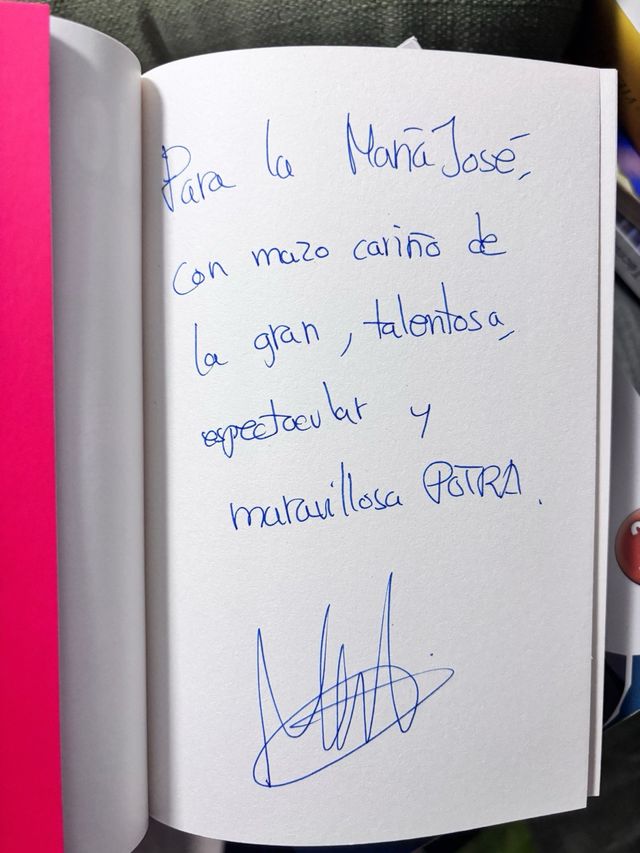 Para la Maria José,
con mazo cariño de
la gran, talentosa,
espectacular y
maravillosa POTRA.